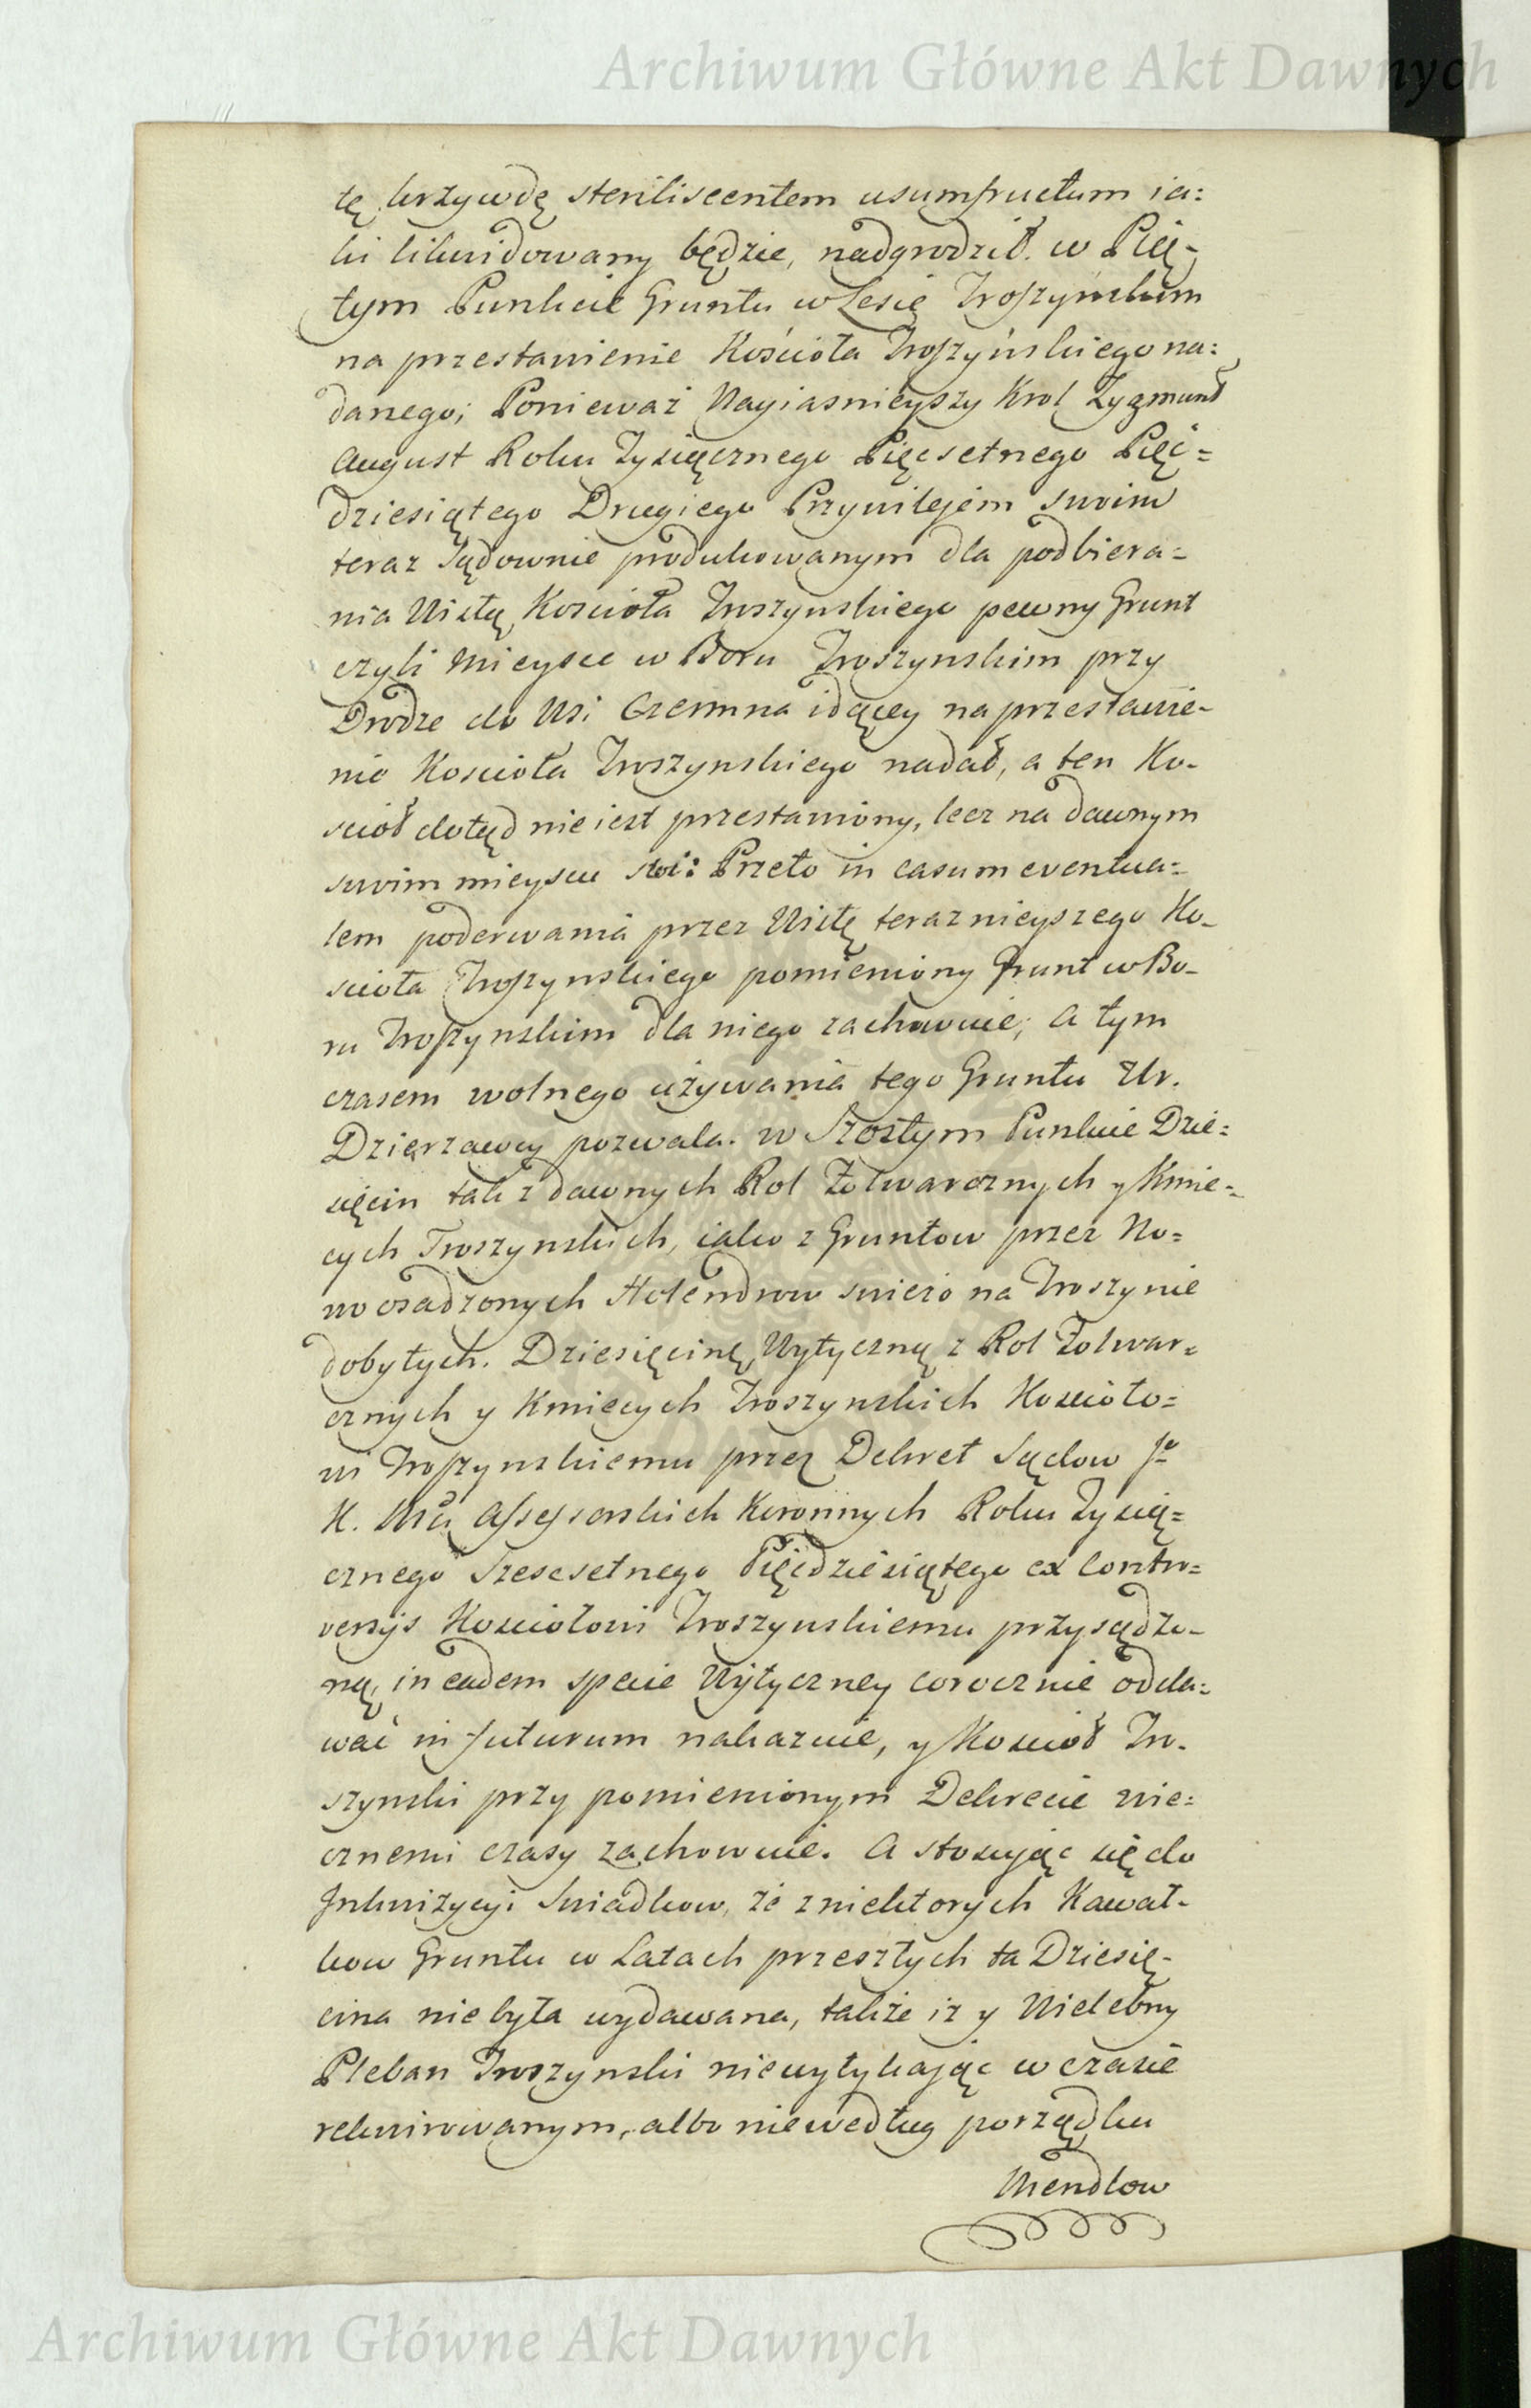 Archiwum Główne Akt Dawnych
tę krzywdę steriliscentem usumfructum ia:
ki likwidowany będzie, nadgrodził. w Pię-
tym Punkcie Gruntu w Lesie Troszyńskim
na przestawienie Kościoła Troszyńskiego na:
danego; Ponieważ Nayiasnieyszy Krol Zygmunt
August Roku Tysiącznego Pięcsetnego Pięć=
dziesiątego Drugiego Przywilejem swoim
teraz sądownie produkowanym dla podbiera=
nia Wisłą Koscioła Troszynskiego pewny Grunt
czyli Mieysce w Boru Troszynskim przy
Drodze do Wsi Czermna idącey na przestawie-
nie Koscioła Troszynskiego nadał, a ten Ko-
sciół dotąd nie iest przestawiony, lecz na dawnym
swoim mieyscu stoi: Przeto in casum eventua=
lem poderwania przez Wisłę teraznieyszego Ko-
scioła Troszynskiego pomieniony Grunt w Bo-
ru Troszynskim dla niego zachowuie; a tym
czasem wolnego używania tego Gruntu Ur.
Dzierzawcy pozwala. w Szostym Punkcie Dzie=
sięcin tak z dawnych Rol Folwarcznych y Kmie=
cych Troszynskich, iako z Gruntow przez No=
wo osadzonych Holendrow swiezo na Troszynie
dobytych. Dziesięcinę Wytyczną z Rol Folwar=
cznych y Kmiecych Troszynskich Koscioło=
wi Troszynskiemu przez Dekret Sądow J.
K. Mci Assessorskich Koronnych Roku Tysią=
cznego Szescsetnego Pięćdziesiątego ex contro=
versijs Kosciołowi Troszynskiemu przysądzo-
ną, in eadem specie Wytyczney corocznie odda=
wać in futurum nakazuie, y Kosciół Tro-
szynski przy pomienionym Dekrecie wie=
cznemi czasy zachowuie. A stosując się do
Inkwizycyi Swiadkow, że z niektorych Kawał-
kow Gruntu w Latach przeszłych ta Dziesię-
cina nie była wydawana, także iz y Wielebny
Pleban Troszynski nie wytykając w czasie
rekwirowanym, albo nie według porządku
Mendlow
Archiwum Główne Akt Dawnych